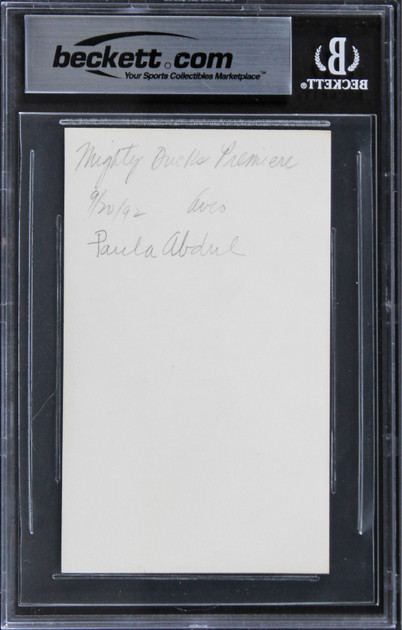 beckett.com
Your Sports Collectibles Marketplace™
BECKETT®
Mighty Ducks Premiere
9/20/92 Avco
Paula Abdul